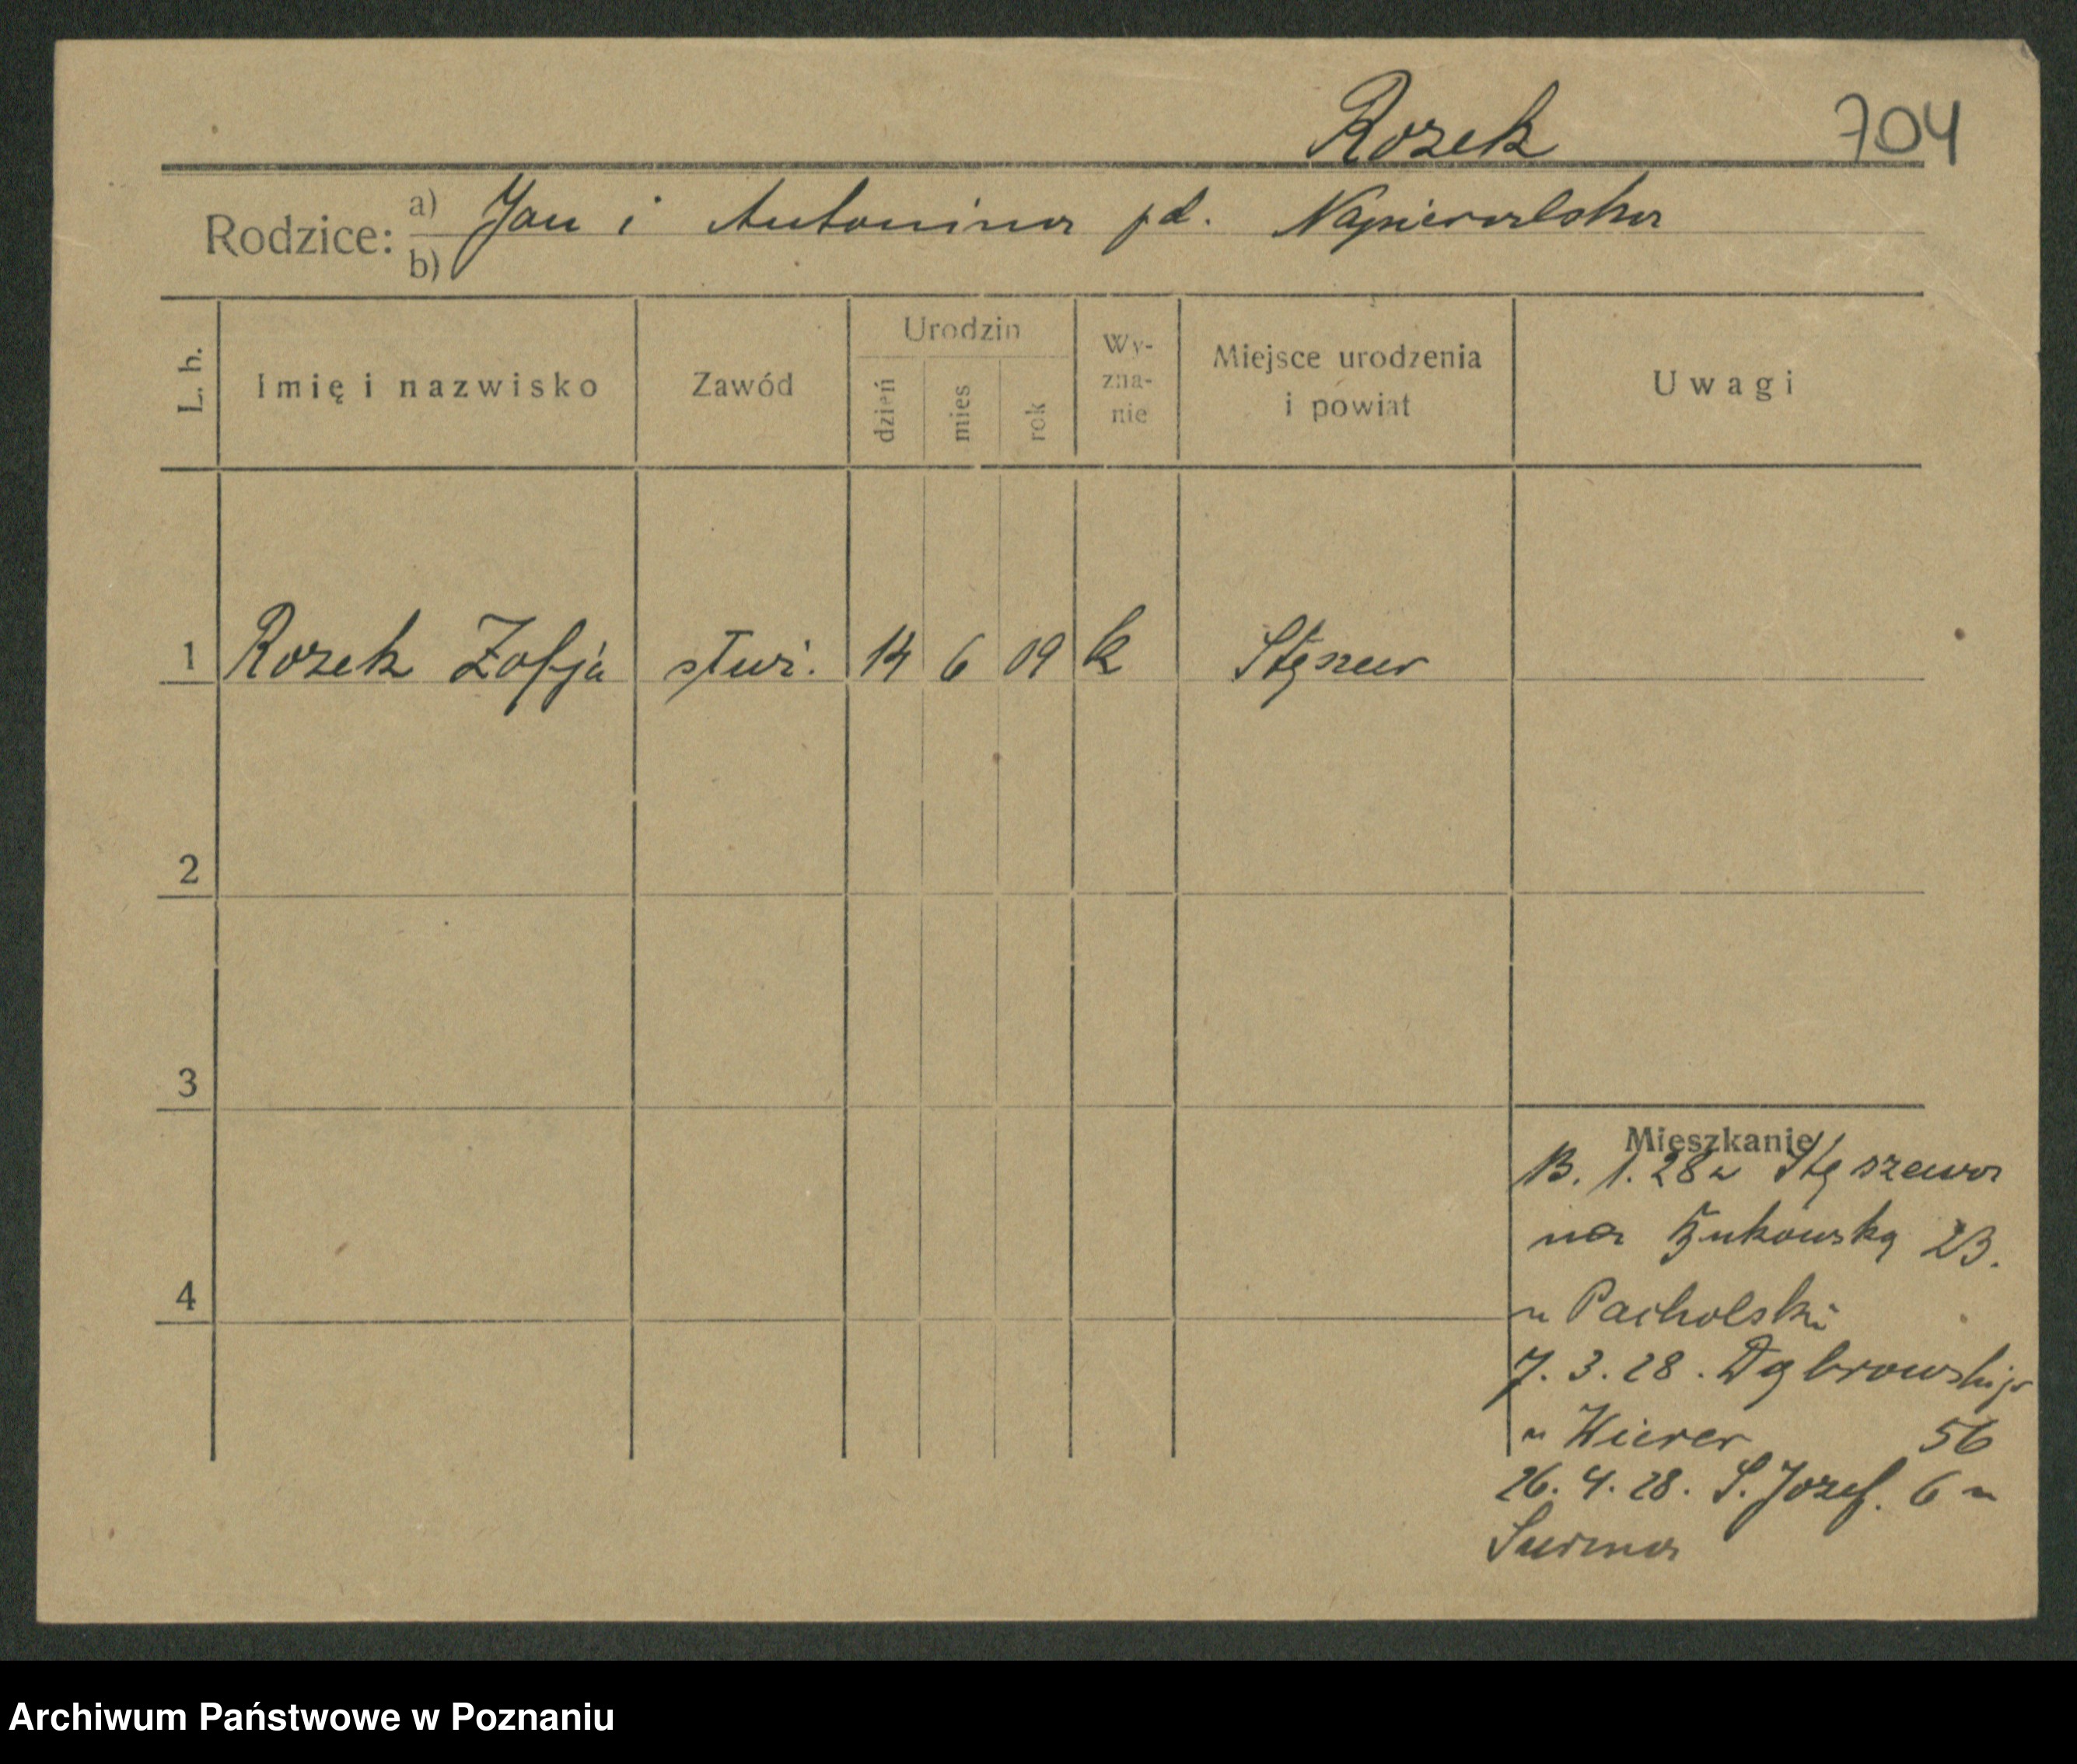 Rozek 704
Rodzice: a) Jan i Antonina pd. Napieralska
b)
L. b. Imię i nazwisko Zawód Urodzin dzień mies rok Wy-zna-nie Miejsce urodzenia i powiat Uwagi
1 Rozek Zofja służ. 14 6 09 k Stęszew
2
3
4
Mieszkanie
13. 1. 28 z Stęszewa
na Bukowską 23.
u Pacholski
7. 3. 28. Dąbrowskiego
u Wierer 56
26. 4. 28. S. Józef. 6 u
Surma
Archiwum Państwowe w Poznaniu